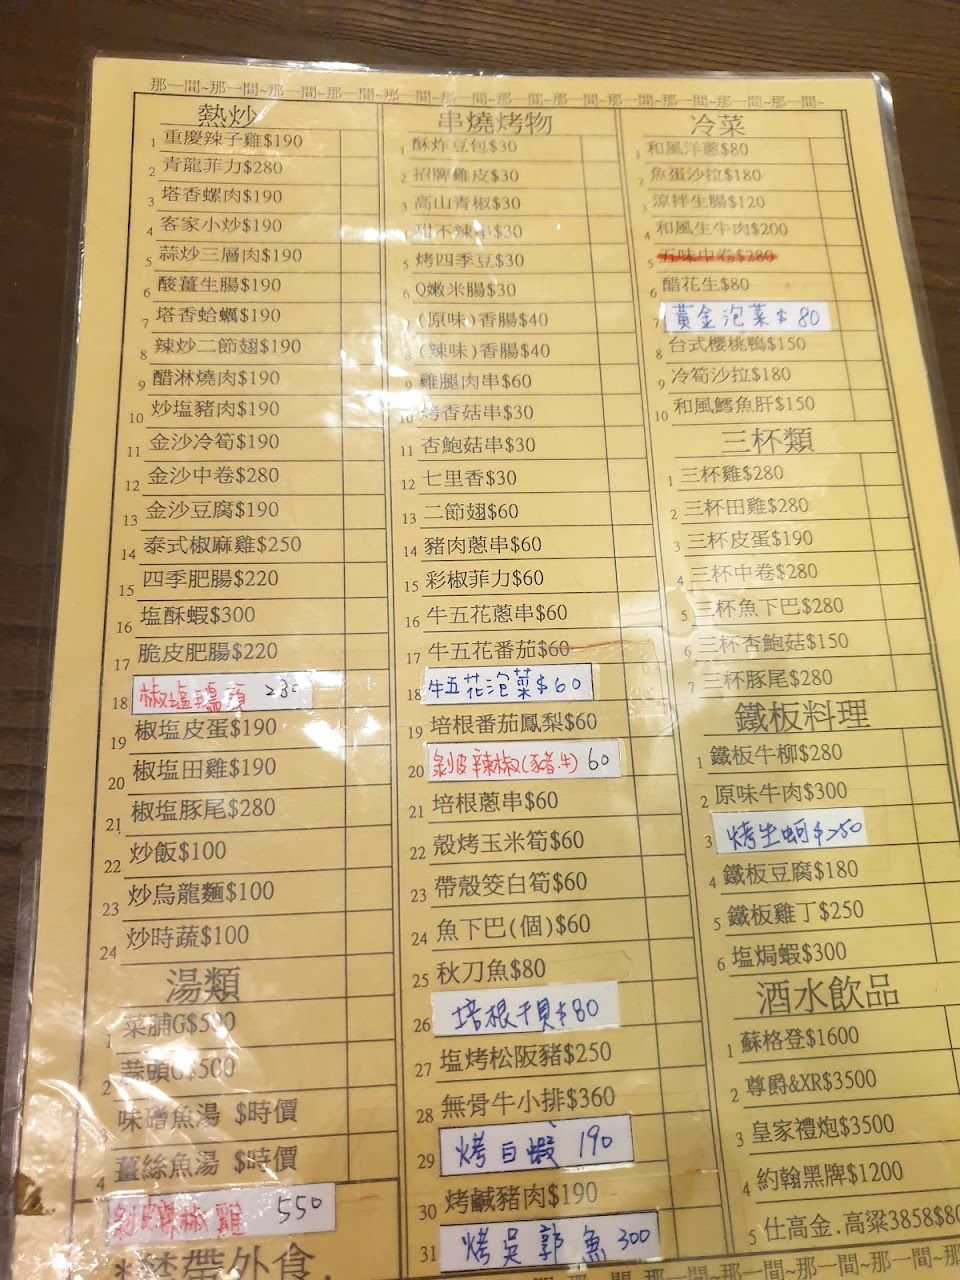 那一間~那一間~那一間~那一間~那一間~那一間~那一間~那一間~那一間~那一間~那一間~那一間~
熱炒
1 重慶辣子雞$190
2 青龍菲力$280
3 塔香螺肉$190
4 客家小炒$190
5 蒜炒三層肉$190
6 酸薑生腸$190
7 塔香蛤蠣$190
8 辣炒二節翅$190
9 醋淋燒肉$190
10 炒塩豬肉$190
11 金沙冷筍$190
12 金沙中卷$280
13 金沙豆腐$190
14 泰式椒麻雞$250
15 四季肥腸$220
16 塩酥蝦$300
17 脆皮肥腸$220
18 椒塩 230
19 椒塩皮蛋$190
20 椒塩田雞$190
21 椒塩豚尾$280
22 炒飯$100
23 炒烏龍麵$100
24 炒時蔬$100
湯類
1 菜脯G$500
2 蒜頭G$500
3 味噌魚湯 $時價
4 薑絲魚湯 $時價
剝皮辣椒雞 550
*禁帶外食.
串燒烤物
1 酥炸豆包$30
2 招牌雞皮$30
3 高山青椒$30
4 甜不辣串$30
5 烤四季豆$30
6 Q嫩米腸$30
7 (原味)香腸$40
8 (辣味)香腸$40
9 雞腿肉串$60
10 烤香菇串$30
11 杏鮑菇串$30
12 七里香$30
13 二節翅$60
14 豬肉蔥串$60
15 彩椒菲力$60
16 牛五花蔥串$60
17 牛五花番茄$60
18 牛五花泡菜$60
19 培根番茄鳳梨$60
20 剝皮辣椒(豬.牛) 60
21 培根蔥串$60
22 殼烤玉米筍$60
23 帶殼筊白筍$60
24 魚下巴(個)$60
25 秋刀魚$80
26 培根干貝$80
27 塩烤松阪豬$250
28 無骨牛小排$360
29 烤白蝦 190
30 烤鹹豬肉$190
31 烤吳郭魚 300
冷菜
1 和風洋蔥$80
2 魚蛋沙拉$180
3 涼拌生腸$120
4 和風生牛肉$200
5 五味中卷$280
6 醋花生$80
7 黃金泡菜$80
8 台式櫻桃鴨$150
9 冷筍沙拉$180
10 和風鱈魚肝$150
三杯類
1 三杯雞$280
2 三杯田雞$280
3 三杯皮蛋$190
4 三杯中卷$280
5 三杯魚下巴$280
6 三杯杏鮑菇$150
7 三杯豚尾$280
鐵板料理
1 鐵板牛柳$280
2 原味牛肉$300
3 烤生蚵$250
4 鐵板豆腐$180
5 鐵板雞丁$250
6 塩焗蝦$300
酒水飲品
1 蘇格登$1600
2 尊爵&XR$3500
3 皇家禮炮$3500
4 約翰黑牌$1200
5 仕高金.高粱3858$80
那一間~那一間~那一間~那一間~那一間~那一間